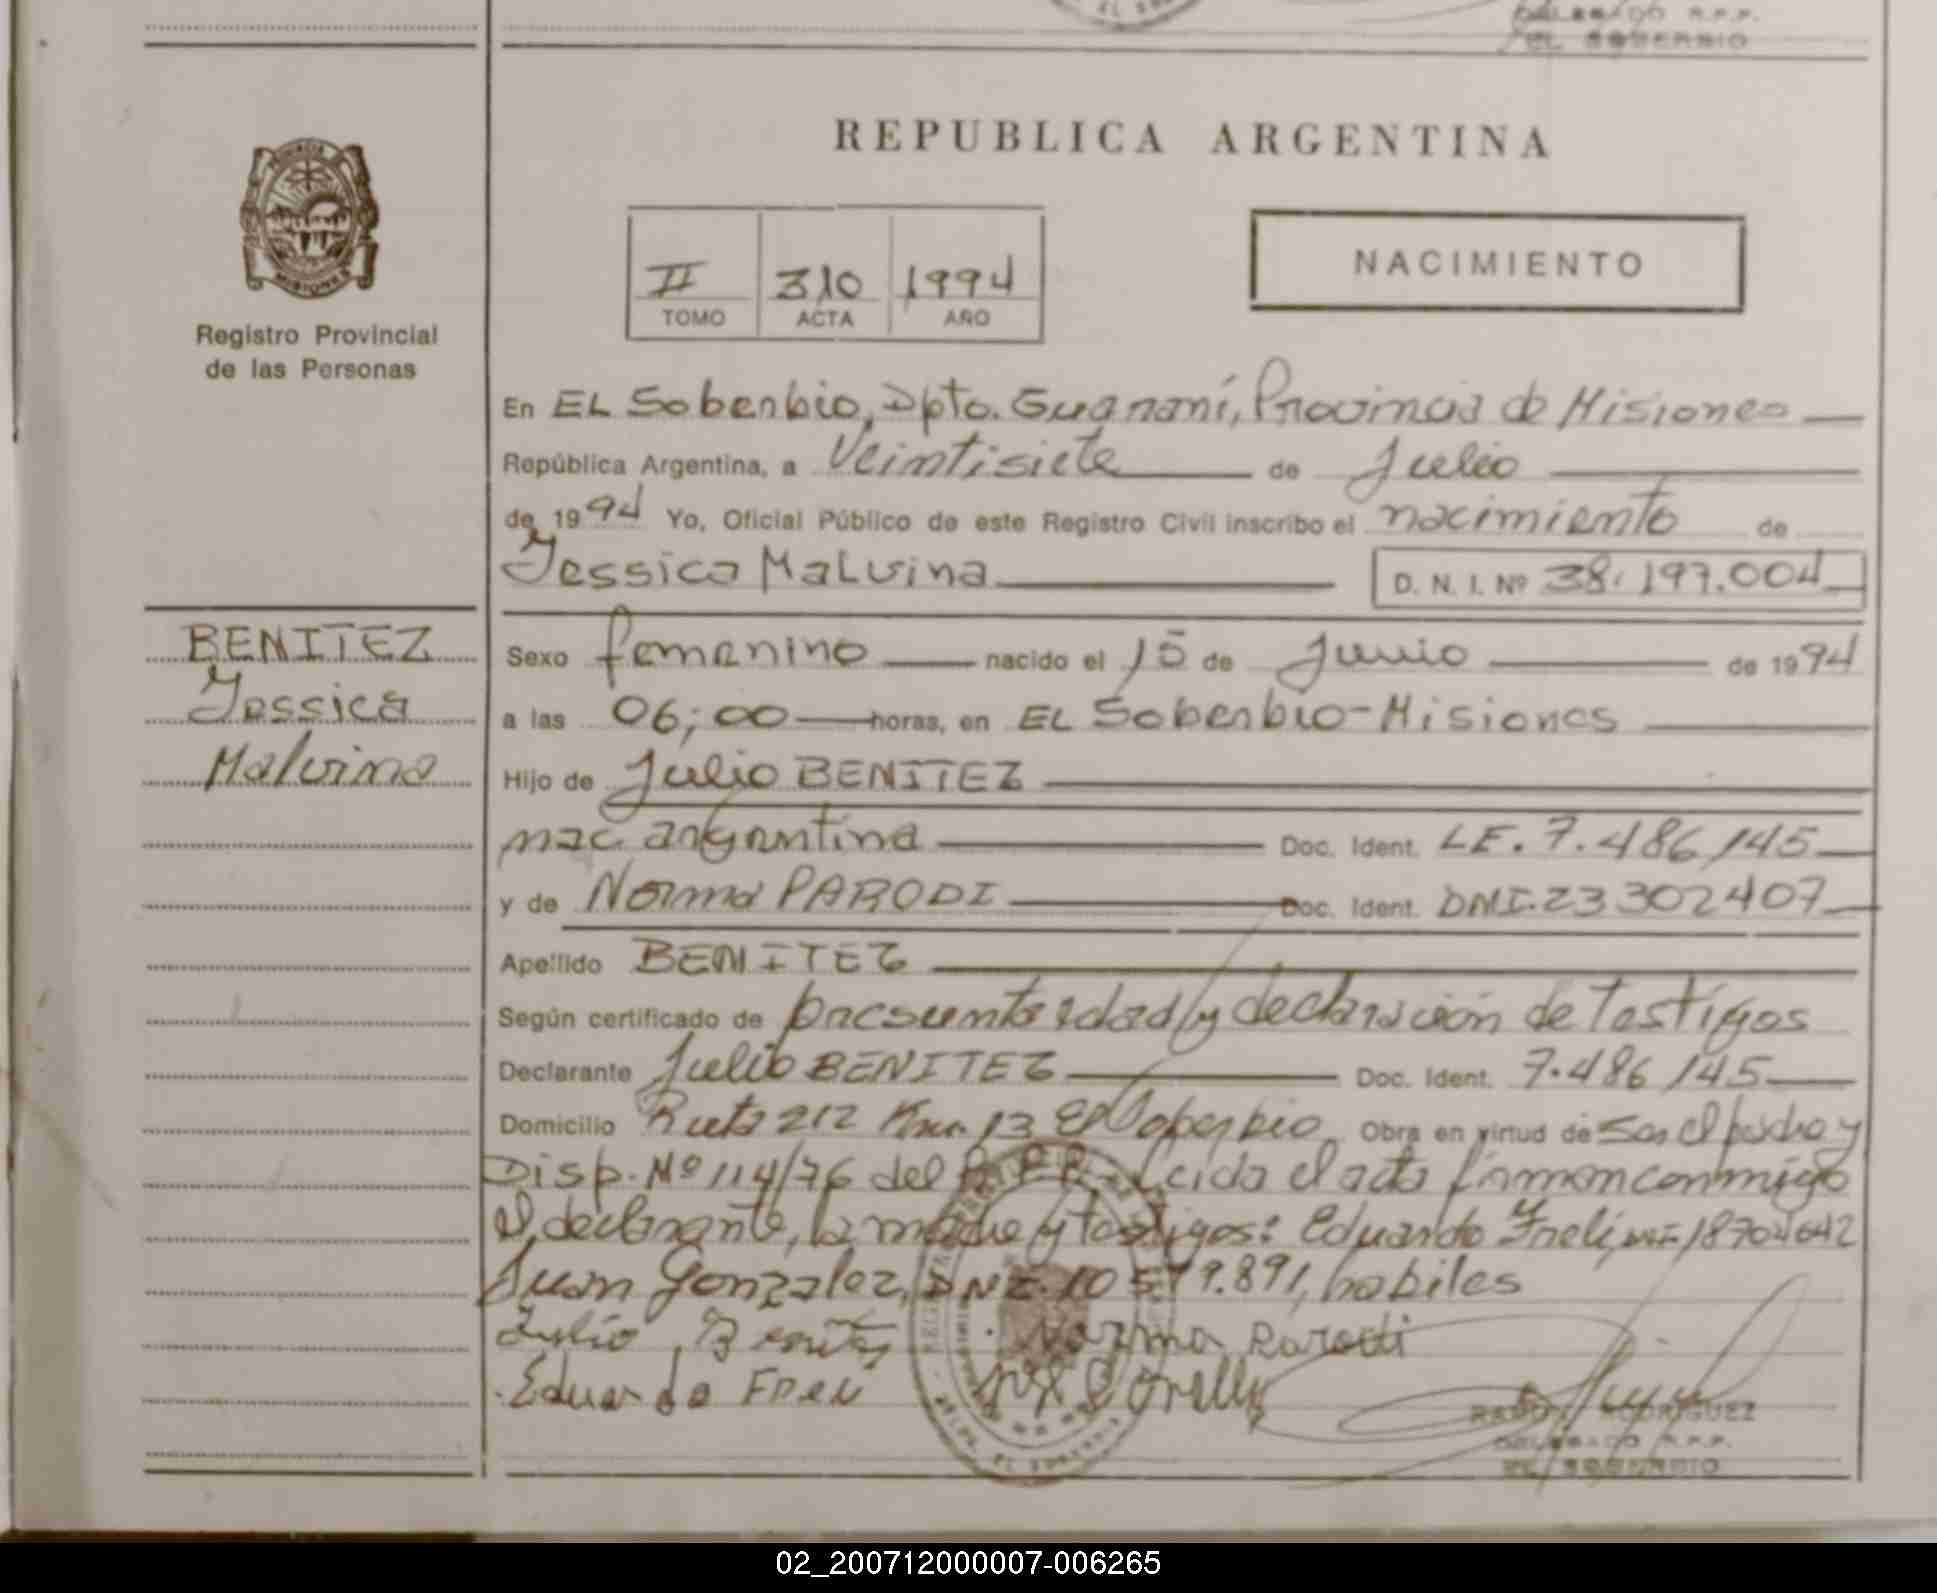 DELEGADO R.P.P.
EL SOBERBIO
REPUBLICA ARGENTINA
NACIMIENTO
II 310 1994
TOMO ACTA AÑO
Registro Provincial
de las Personas
En EL Soberbio, Dpto. Guaraní, Provincia de Misiones
República Argentina, a Veintisiete de Julio
de 1994 Yo, Oficial Público de este Registro Civil inscribo el nacimiento de
Jessica Malvina D. N. I. Nº 38.197.004
BENITEZ
Jessica
Malvina
Sexo femenino nacido el 15 de Junio de 1994
a las 06,00 horas, en EL Soberbio-Misiones
Hijo de Julio BENITEZ
nac. argentina Doc. Ident. LE. 7.486,145
y de Norma PARODI Doc. Ident. DNI.23302407
Apellido BENITEZ
Según certificado de presunta edad y declaración de Testigos
Declarante Julio BENITEZ Doc. Ident. 7.486,145
Domicilio Ruta 212 Km. 13 El Soberbio Obra en virtud de Ser el padre y
Disp. Nº 114/76 del R.P.P. Leida el acta firman conmigo
el declarante, la madre y testigos: Eduardo Freli, 18704642
Juan Gonzalez, DNI. 10 579.891, habiles
Julio Benitez Norma Parodi
Eduardo
RAMON RODRIGUEZ
DELEGADO R.P.P.
EL SOBERBIO
02_200712000007-006265